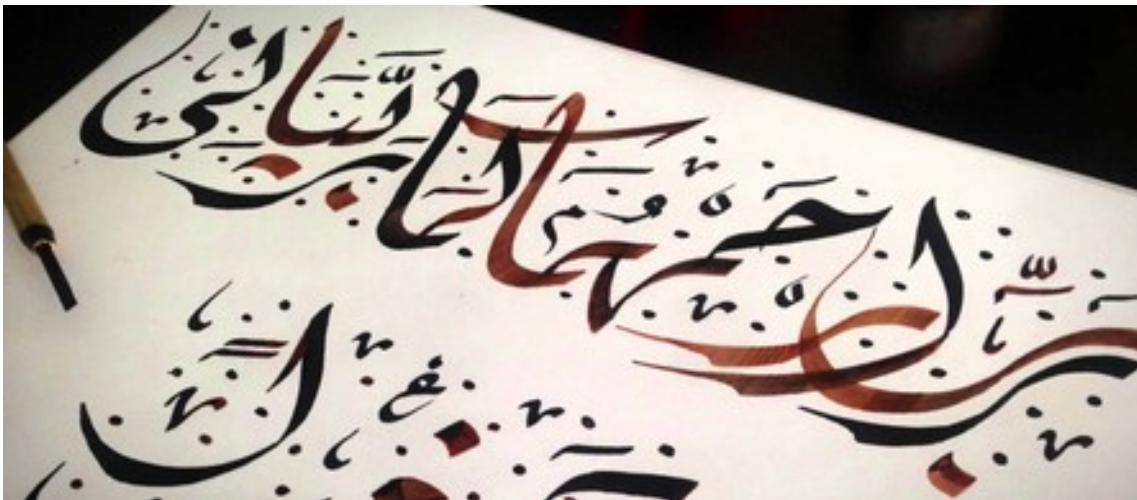 رَبِّ ارْحَمْهُمَا كَمَا رَبَّيَانِي